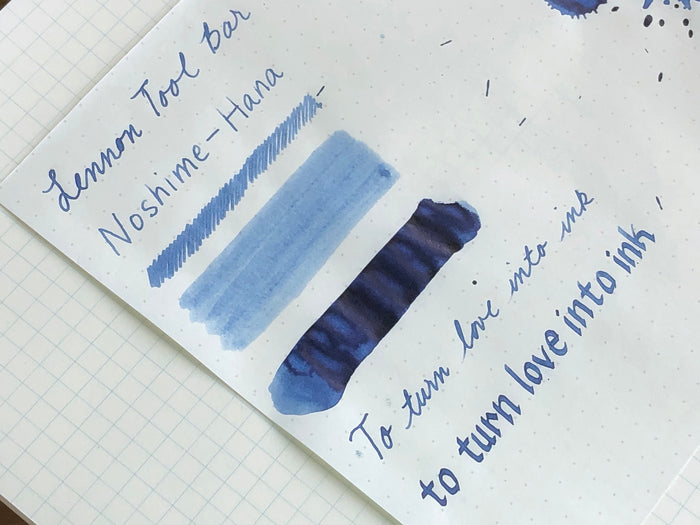 Lennon Tool Bar
Noshime-Hana
To turn love into ink
to turn love into ink